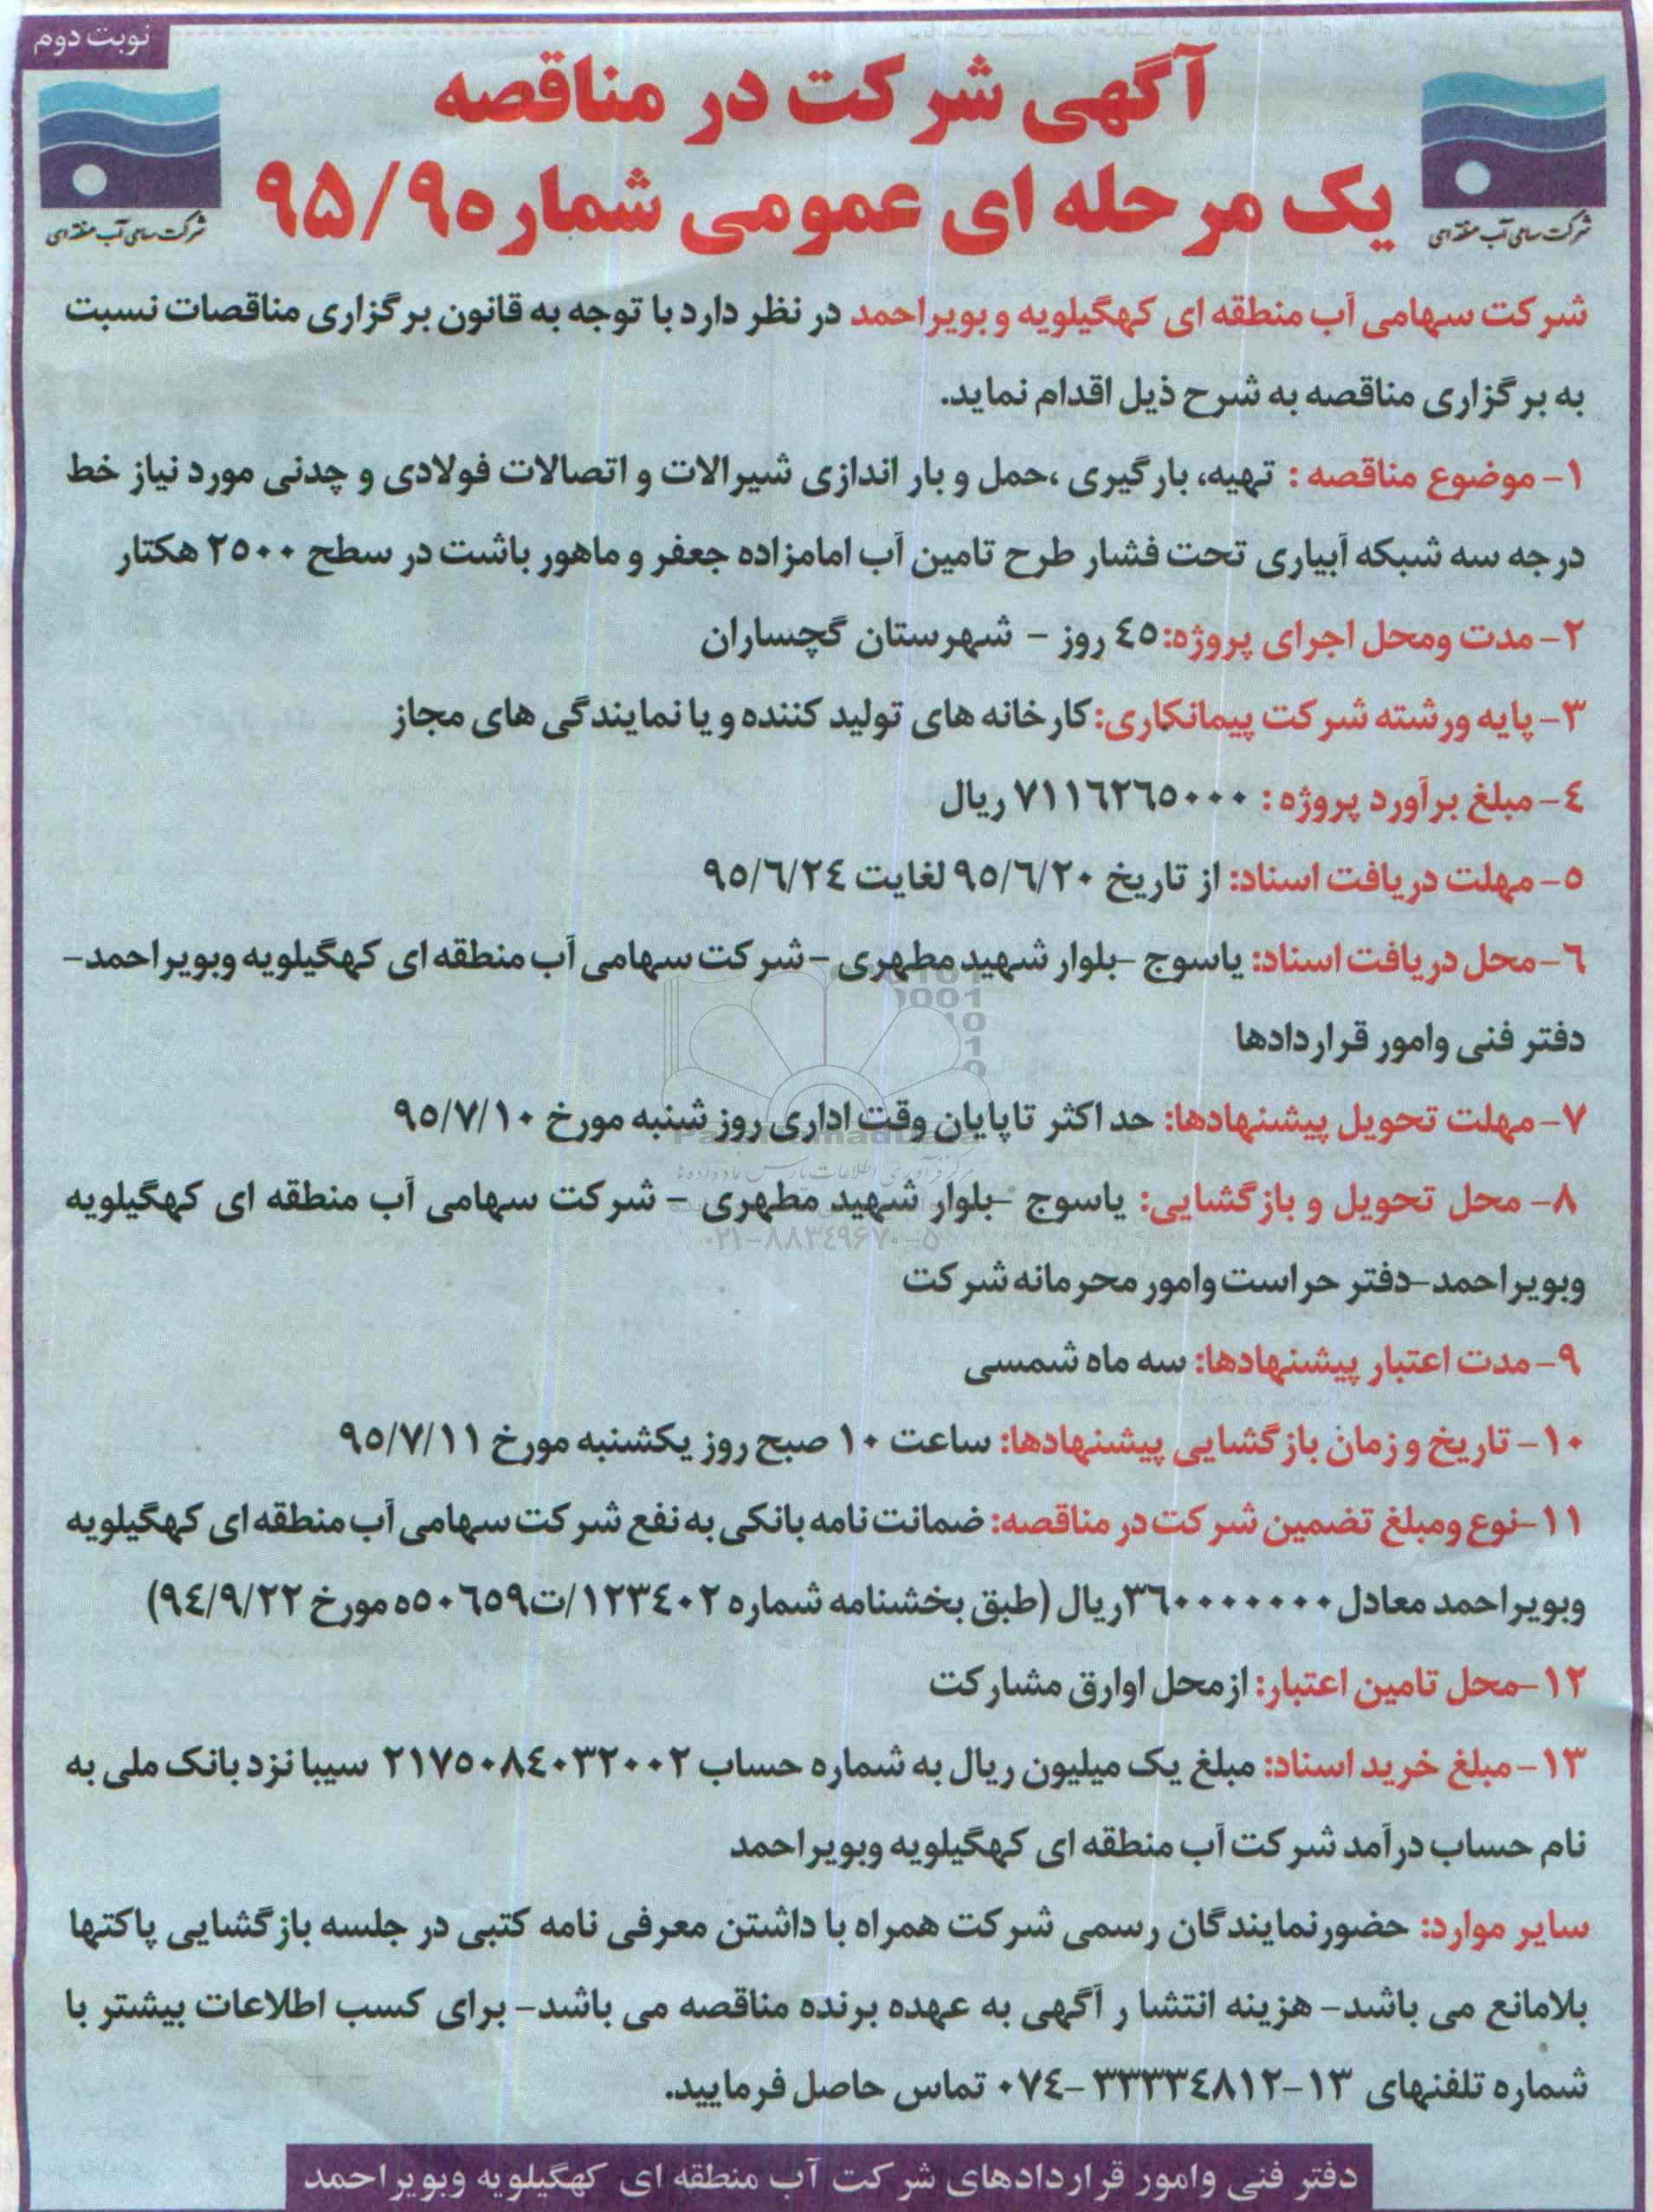 نوبت دوم
آگهی شرکت در مناقصه
یک مرحله ای عمومی شماره ۹۵/۹
شرکت سهامی آب منطقه ای
شرکت سهامی آب منطقه ای
شرکت سهامی آب منطقه ای کهگیلویه و بویراحمد در نظر دارد با توجه به قانون برگزاری مناقصات نسبت
به برگزاری مناقصه به شرح ذیل اقدام نماید.
۱- موضوع مناقصه : تهیه، بارگیری ،حمل و بار اندازی شیرالات و اتصالات فولادی و چدنی مورد نیاز خط
درجه سه شبکه آبیاری تحت فشار طرح تامین آب امامزاده جعفر و ماهور باشت در سطح ۲۵۰۰ هکتار
۲- مدت ومحل اجرای پروژه:٤۵ روز - شهرستان گچساران
۳- پایه ورشته شرکت پیمانکاری:کارخانه های تولید کننده و یا نمایندگی های مجاز
٤- مبلغ برآورد پروژه : ۷۱۱٦۲٦۵۰۰۰ ریال
۵- مهلت دریافت اسناد: از تاریخ ۹۵/٦/۲۰ لغایت ۹۵/٦/۲٤
٦- محل دریافت اسناد: یاسوج -بلوار شهید مطهری -شرکت سهامی آب منطقه ای کهگیلویه وبویراحمد-
دفتر فنی وامور قراردادها
۷- مهلت تحویل پیشنهادها: حداکثر تاپایان وقت اداری روز شنبه مورخ ۹۵/۷/۱۰
مرکز فرآوری اطلاعات پارس نماد داده ها
۸- محل تحویل و بازگشایی: یاسوج -بلوار شهید مطهری - شرکت سهامی آب منطقه ای کهگیلویه
۰۲۱-۸۸۳۴۹۶۷۰-۵
وبویراحمد-دفتر حراست وامور محرمانه شرکت
۹- مدت اعتبار پیشنهادها: سه ماه شمسی
۱۰- تاریخ و زمان بازگشایی پیشنهادها: ساعت ۱۰ صبح روز یکشنبه مورخ ۹۵/۷/۱۱
۱۱-نوع ومبلغ تضمین شرکت در مناقصه: ضمانت نامه بانکی به نفع شرکت سهامی آب منطقه ای کهگیلویه
وبویراحمد معادل ۳٦۰۰۰۰۰۰۰ریال (طبق بخشنامه شماره ۱۲۳٤۰۲/ت۵۰٦۵۹ه مورخ ۹٤/۹/۲۲)
۱۲-محل تامین اعتبار: ازمحل اوارق مشارکت
۱۳- مبلغ خرید اسناد: مبلغ یک میلیون ریال به شماره حساب ۲۱۷۵۰۸٤۰۳۲۰۰۲ سیبا نزد بانک ملی به
نام حساب درآمد شرکت آب منطقه ای کهگیلویه وبویراحمد
سایر موارد: حضورنمایندگان رسمی شرکت همراه با داشتن معرفی نامه کتبی در جلسه بازگشایی پاکتها
بلامانع می باشد- هزینه انتشا ر آگهی به عهده برنده مناقصه می باشد- برای کسب اطلاعات بیشتر با
شماره تلفنهای ۱۳-۳۳۳۳٤۸۱۲ -۰۷٤ تماس حاصل فرمایید.
دفتر فنی وامور قراردادهای شرکت آب منطقه ای کهگیلویه وبویراحمد